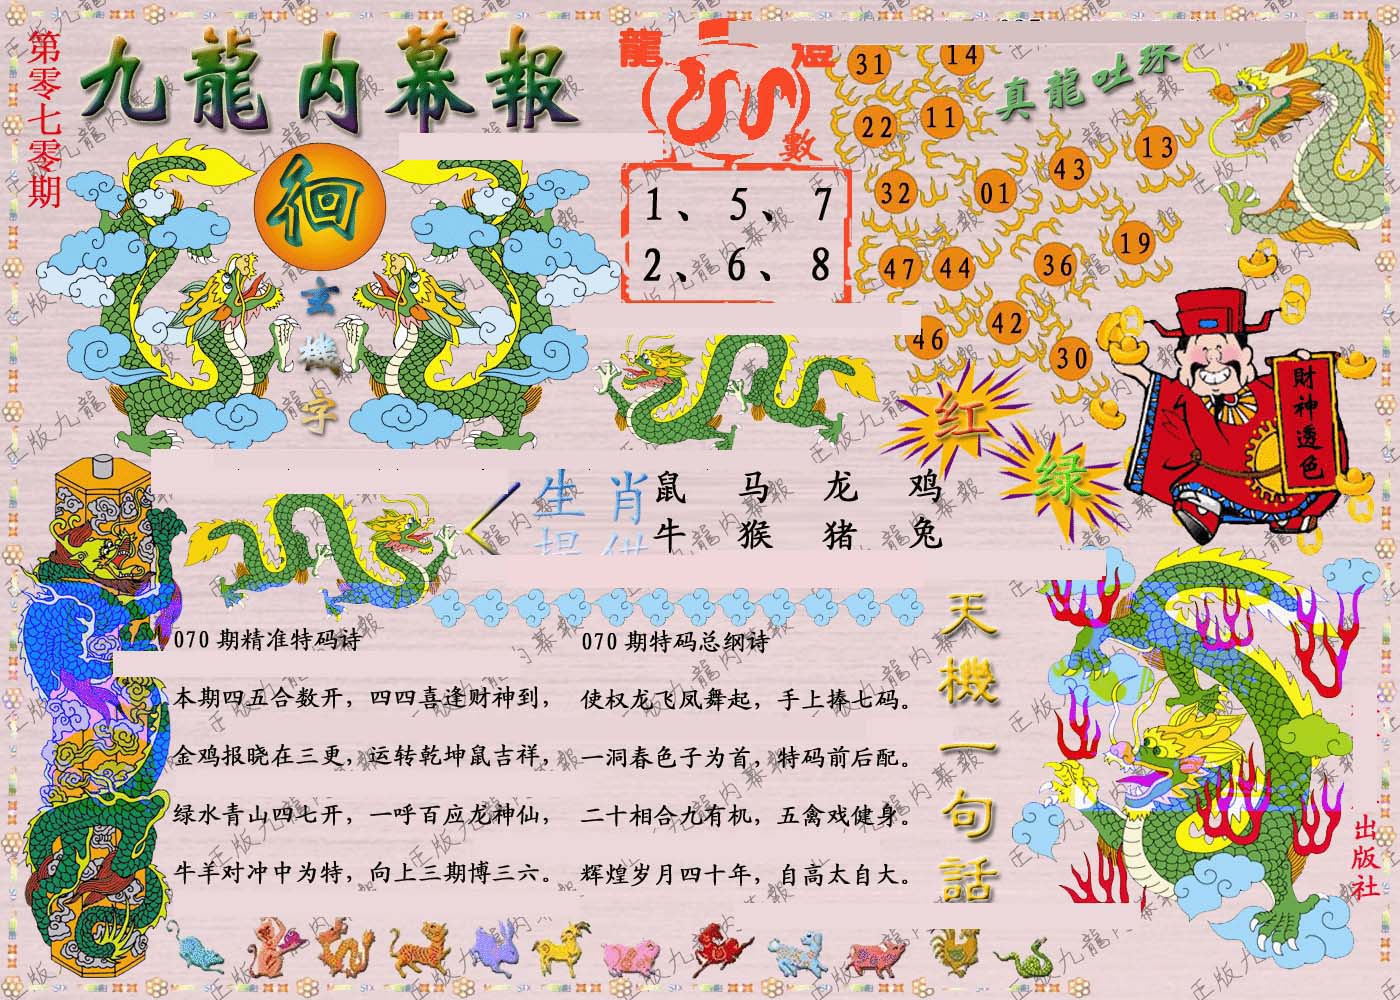 第零七零期
九龍内幕報
徊
玄機字
龍
數
1、5、7
2、6、8
31
14
22
11
43
13
32
01
47
44
36
19
46
42
30
真龍吐珠
財神透色
红
绿
生肖
提供
鼠 马 龙 鸡
牛 猴 猪 兔
070 期精准特码诗
本期四五合数开，四四喜逢财神到，
金鸡报晓在三更，运转乾坤鼠吉祥，
绿水青山四七开，一呼百应龙神仙，
牛羊对冲中为特，向上三期博三六。
070 期特码总纲诗
使权龙飞凤舞起，手上捧七码。
一洞春色子为首，特码前后配。
二十相合九有机，五禽戏健身。
辉煌岁月四十年，自高太自大。
天機一句話
出版社
正版九龍内幕報